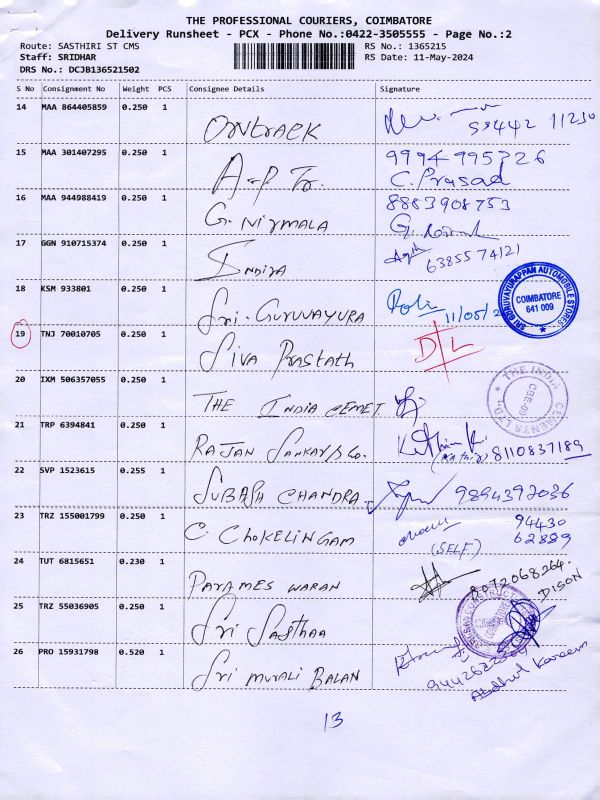 THE PROFESSIONAL COURIERS, COIMBATORE
Delivery Runsheet - PCX - Phone No.:0422-3505555 - Page No.:2
Route: SASTHIRI ST CMS RS No.: 1365215
Staff: SRIDHAR RS Date: 11-May-2024
DRS No.: DCJB136521502
S No Consignment No Weight PCS Consignee Details Signature
14 MAA 864405859 0.250 1 Ontrack 11230
15 MAA 301407295 0.250 1 A-P Tr. 9994995326
C. Prasad
16 MAA 944988419 0.250 1 G. Nirmala 8883908753
17 GGN 910715374 0.250 1 Indira 6385574121
18 KSM 933801 0.250 1 Sri. Guruvayura 11/05/2
SRI GURUVAYURAPPAN AUTOMOBILE STORES
COIMBATORE
641 009
19 TNJ 70010705 0.250 1 Siva Praskath D/L
20 IXM 506357055 0.250 1 The India Cemet.
THE INDIA CEMENTS LTD.
CBE-09
21 TRP 6394841 0.250 1 Rajan Sankar & Co. 8110837189
22 SVP 1523615 0.255 1 Subash Chandra. 9894397036
23 TRZ 155001799 0.250 1 C. Chokelingam 94430
(SELF) 62889
24 TUT 6815651 0.230 1 Parames Waran 8072068264.
DISON
25 TRZ 55036905 0.250 1 Sri Sasthaa
26 PRO 15931798 0.520 1 Sri Murali Balan
Abdhul Kareem
13